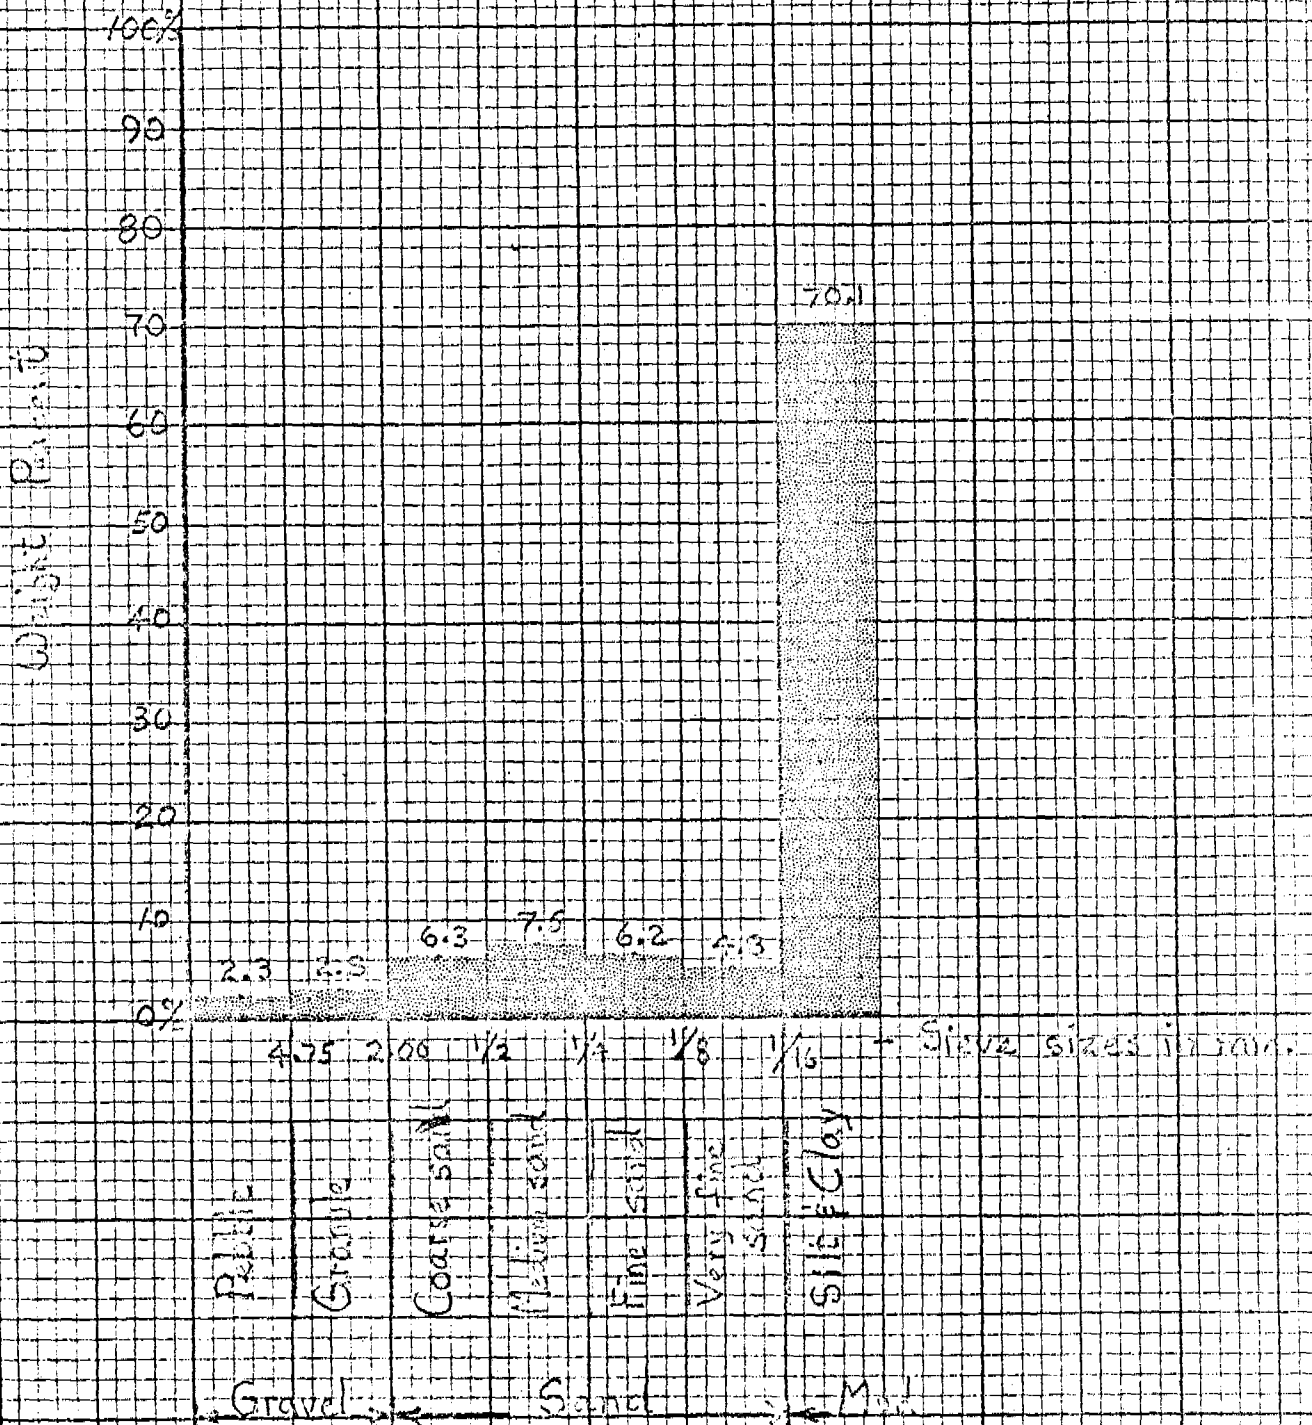 100%
90
80
70.1
70
Weight Percent
60
50
40
30
20
10
6.3 7.6 6.2 4.3
2.3
0%
4.75 2.00 1/2 1/4 1/8 1/16 Sieve sizes in mm.
Pebble
Granule
Coarse sand
Medium sand
Fine sand
Very fine
sand
Silt & Clay
Gravel Sand Mud